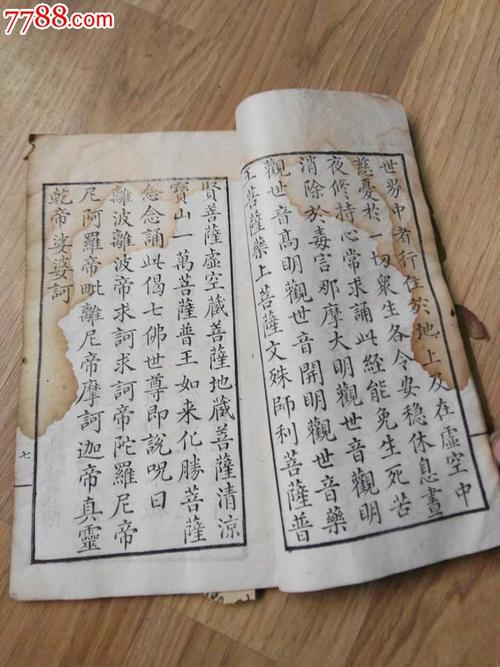 7788.com
世界中者行住於地上及在虛空中
慈憂於一切衆生各令安穩休息晝
夜修持心常求誦此經能免生死苦
消除於毒害那摩大明觀世音觀明
觀世音高明觀世音開明觀世音藥
王菩薩藥上菩薩文殊師利菩薩普
賢菩薩虛空藏菩薩地藏菩薩清涼
寶山一萬菩薩普王如来化勝菩薩
念念誦此偈七佛世尊即說呪曰
離波離波帝求訶求訶帝陀羅尼帝
尼阿羅帝毗離尼帝摩訶迦帝真靈
乾帝娑婆訶
七